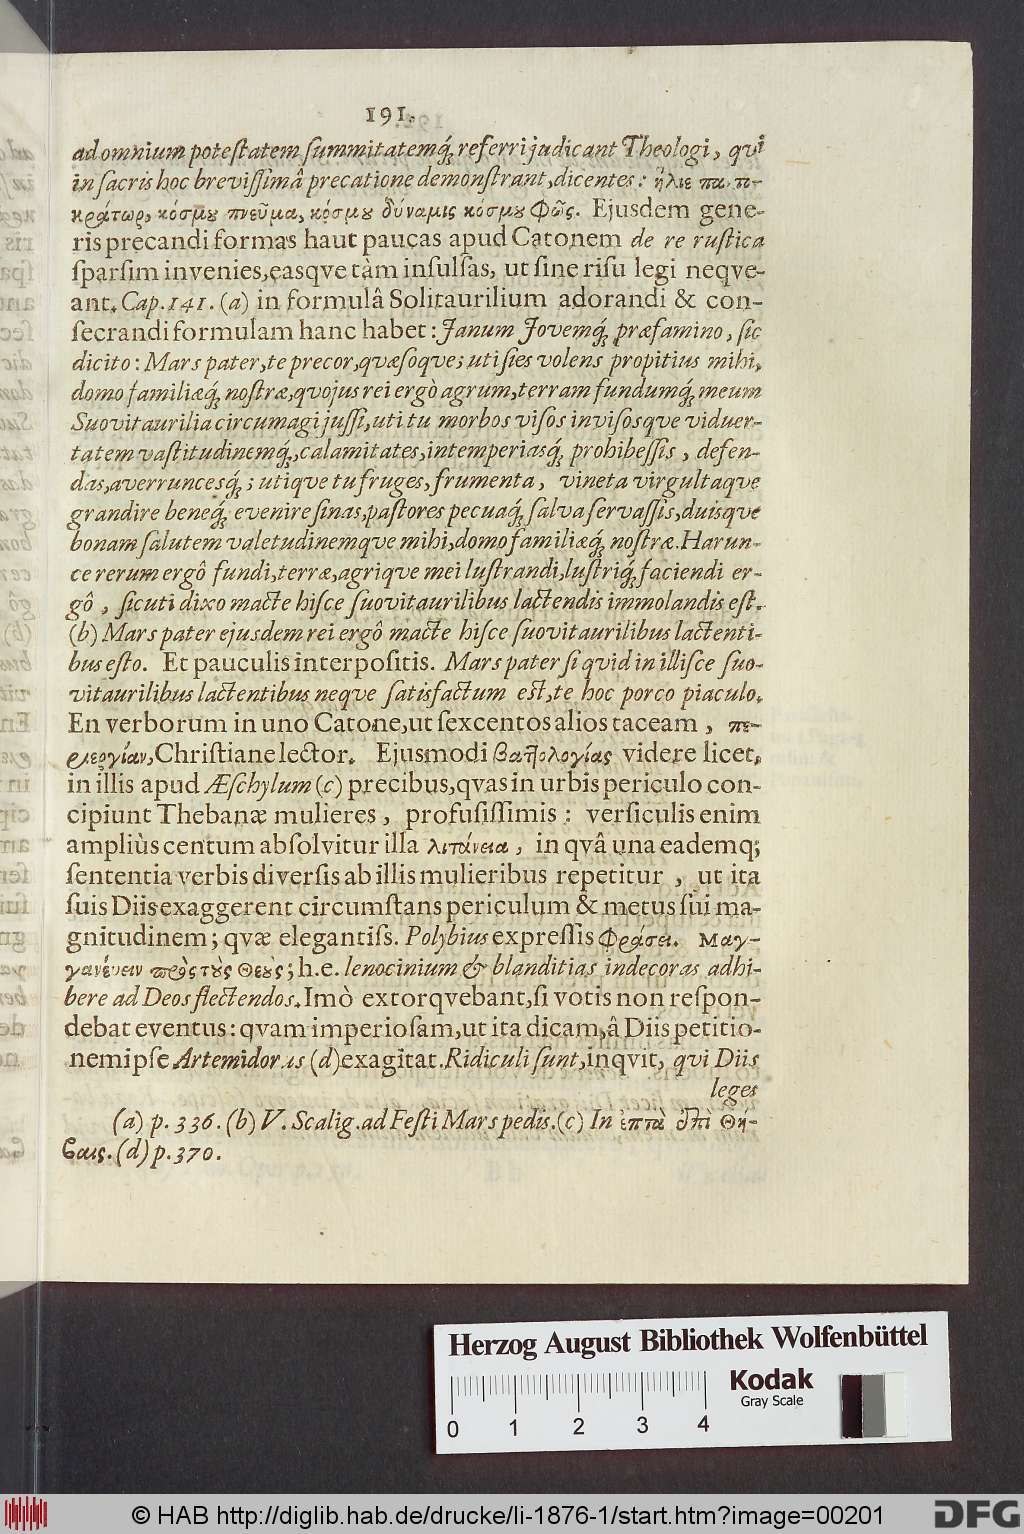 191.
ad omnium potestatem summitatemq́; referri judicant Theologi, qvi
in sacris hoc brevissimâ precatione demonstrant, dicentes: ἥλιε παντ-
κράτωρ, κόσμȣ πνεῦμα, κόσμȣ δύναμις κόσμȣ Φῶς. Ejusdem gene-
ris precandi formas haut paucas apud Catonem de re rustica
sparsim invenies, easqve tàm insulsas, ut sine risu legi neqve-
ant. Cap. 141. (a) in formulâ Solitaurilium adorandi & con-
secrandi formulam hanc habet: Janum Jovemq́; præfamino, sic
dicito: Mars pater, te precor, qvæsoqve; uti sies volens propitius mihi,
domo familiæq́; nostræ, qvojus rei ergò agrum, terram fundumq́; meum
Suovitaurilia circumagi jussi, uti tu morbos visos invisosqve viduer-
tatem vastitudinemq́;, calamitates, intemperiasq́; prohibessis, defen-
das, averruncesq́;; utiqve tu fruges, frumenta, vineta virgultaqve
grandire beneq́; evenire sinas, pastores pecuaq́; salva servassis, duisqve
bonam salutem valetudinemqve mihi, domo familiæq́; nostræ. Harun-
ce rerum ergô fundi, terræ, agriqve mei lustrandi, lustriq́; faciendi er-
gô, sicuti dixo macte hisce suovitaurilibus lactendis immolandis est.
(b) Mars pater ejusdem rei ergô macte hisce suovitaurilibus lactenti-
bus esto. Et pauculis interpositis. Mars pater si qvid in illisce suo-
vitaurilibus lactentibus neqve satisfactum est, te hoc porco piaculo.
En verborum in uno Catone, ut sexcentos alios taceam, πε-
ριεργίαν, Christiane lector. Ejusmodi βατ7ολογίας videre licet,
in illis apud Æschylum (c) precibus, qvas in urbis periculo con-
cipiunt Thebanæ mulieres, profusissimis: versiculis enim
ampliùs centum absolvitur illa λιτάνεια, in qvâ una eademq;
sententia verbis diversis ab illis mulieribus repetitur, ut ita
suis Diis exaggerent circumstans periculum & metus sui ma-
gnitudinem; qvæ elegantiss. Polybius expressis Φράσει. Μαγ-
γανέυειν πρὸς τȣ̀ς Θεȣ́ς; h.e. lenocinium & blanditias indecoras adhi-
bere ad Deos flectendos. Imò extorqvebant, si votis non respon-
debat eventus: qvam imperiosam, ut ita dicam, â Diis petitio-
nem ipse Artemidorus (d) exagitat. Ridiculi sunt, inqvit, qvi Diis
leges
(a) p. 336. (b) V. Scalig. ad Festi Mars pedis. (c) In ἑπτὰ ἐπὶ Θή-
βαις. (d) p. 370.
Herzog August Bibliothek Wolfenbüttel
0 1 2 3 4
Kodak
Gray Scale
© HAB http://diglib.hab.de/drucke/li-1876-1/start.htm?image=00201
DFG